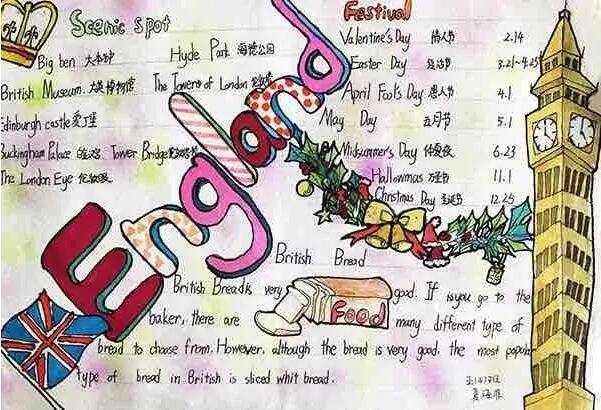 Scenic spot
Big ben 大本钟
Hyde Park 海德公园
British Museum 大英博物馆
The Towers of London
Edinburgh castle 爱丁堡
Buckingham Palace
Tower Bridge
The London Eye 伦敦眼
England
Festival
Valentine's Day 情人节 2.14
Easter Day 复活节 3.21~4.25
April Fool's Day 愚人节 4.1
May Day 五月节 5.1
Midsummer's Day 仲夏夜 6.23
Hallowmas 万圣节 11.1
Christmas Day 圣诞节 12.25
British Bread
British Breadis very good. If isyou go to the
Food
baker, there are many different type of
bread to choose from. However, although the bread is very good, the most popula
type of bread in British is sliced whit bread.